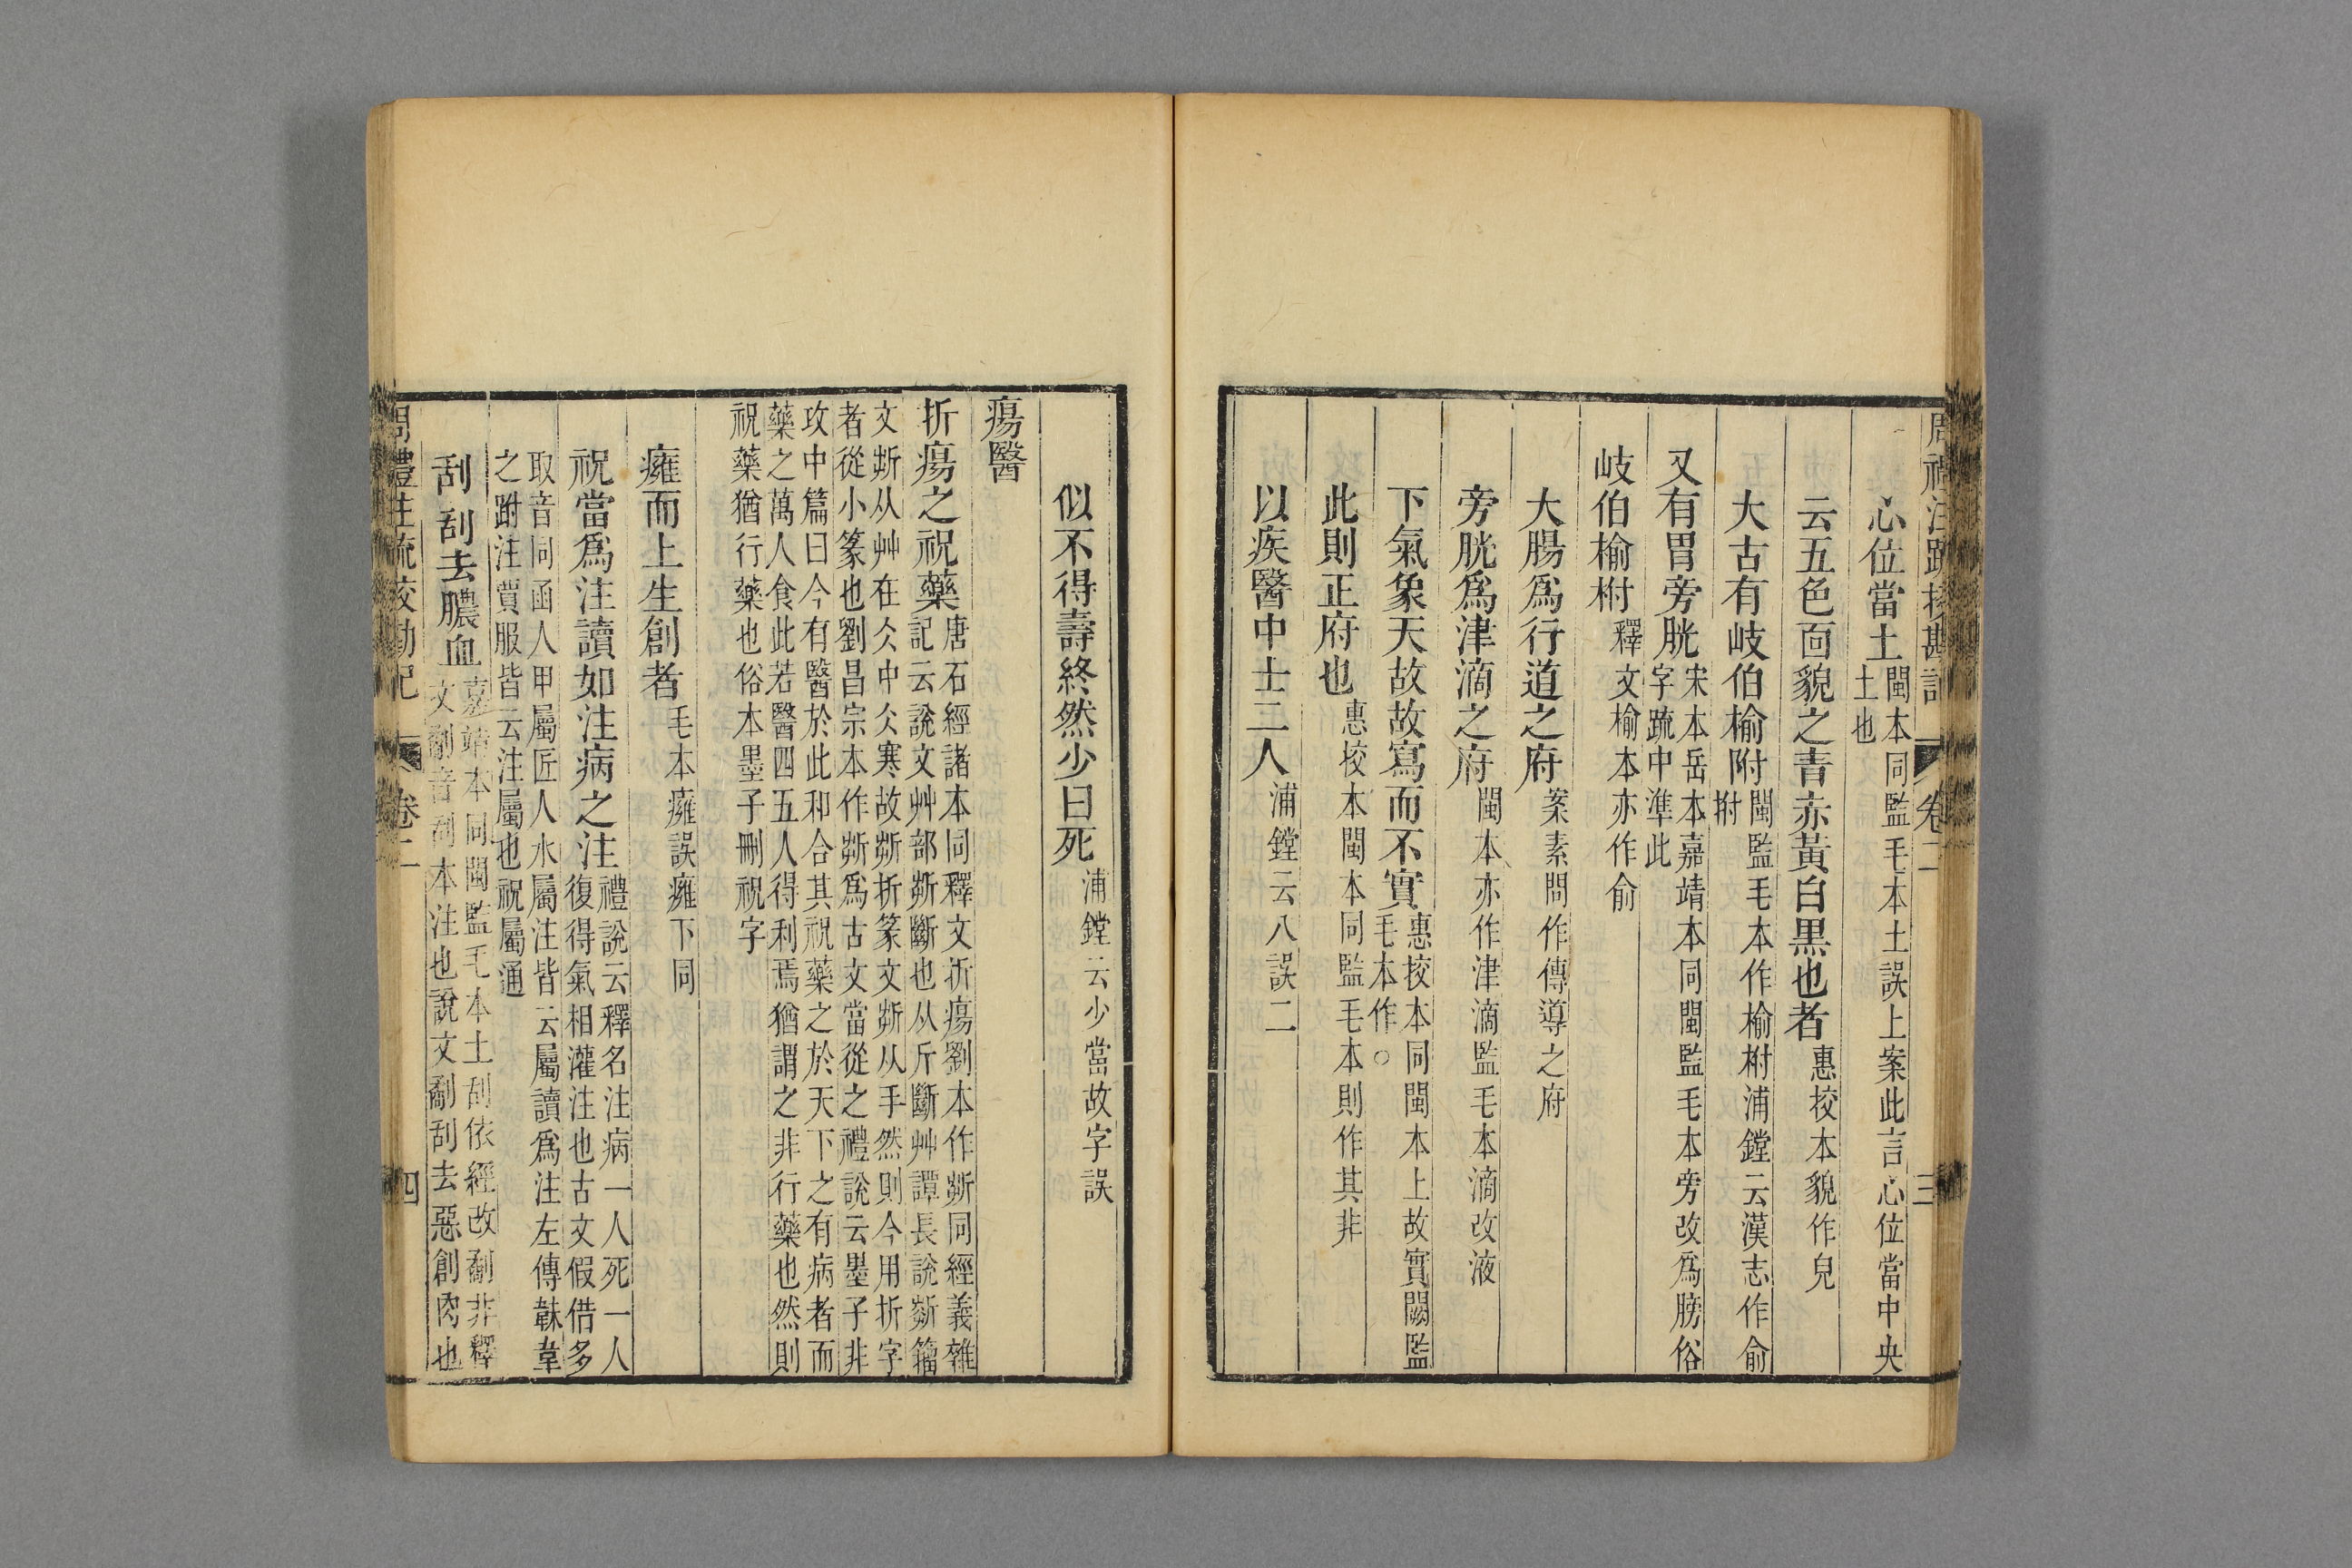 周禮注疏挍勘記 卷二 三
心位當土閩本同監毛本土誤上案此言心位當中央土也
云五色面貌之青赤黃白黑也者惠挍本貌作皃
大古有岐伯榆附閩監毛本作榆柎浦鏜云漢志作俞拊
又有胃旁胱宋本岳本嘉靖本同閩監毛本旁改爲膀俗字疏中準此
岐伯榆柎釋文榆本亦作俞
大腸爲行道之府案素問作傳導之府
旁胱爲津滴之府閩本亦作津滴監毛本滴改液
下氣象天故故寫而不實惠挍本同閩本上故實闕監毛本作○
此則正府也惠挍本閩本同監毛本則作其非
以疾醫中士二人浦鏜云八誤二
似不得壽終然少曰死浦鏜云少當故字誤
瘍醫
折瘍之祝藥唐石經諸本同釋文折瘍劉本作斮同經義雜記云說文艸部斮斷也从斤斷艸譚長說斮籀
文斮从艸在仌中仌寒故斮折篆文斮从手然則今用折字者從小篆也劉昌宗本作斮爲古文當從之禮說云墨子非
攻中篇曰今有醫於此和合其祝藥之於天下之有病者而藥之萬人食此若醫四五人得利焉猶謂之非行藥也然則
祝藥猶行藥也俗本墨子刪祝字
癰而上生創者毛本癰誤癕下同
祝當爲注讀如注病之注禮說云釋名注病一人死一人復得氣相灌注也古文假借多
取音同函人甲屬匠人水屬注皆云屬讀爲注左傳韎韋之跗注賈服皆云注屬也祝屬通
刮刮去膿血嘉靖本同閩監毛本上刮依經改劀非釋文劀音刮本注也說文劀刮去惡創肉也
周禮注疏挍勘記 卷二 四